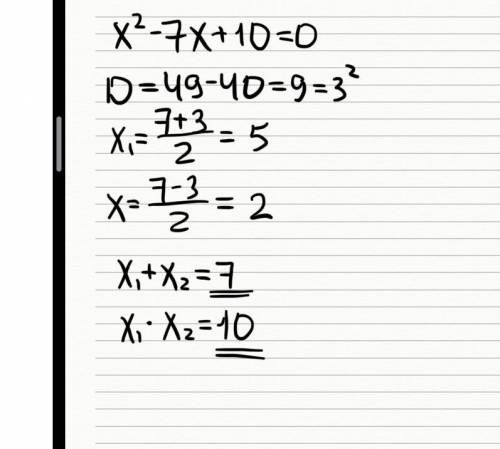 x²-7x+10=0
D=49-40=9=3²
x₁=\frac{7+3}{2}=5
x=\frac{7-3}{2}=2
x₁+x₂=7
x₁·x₂=10